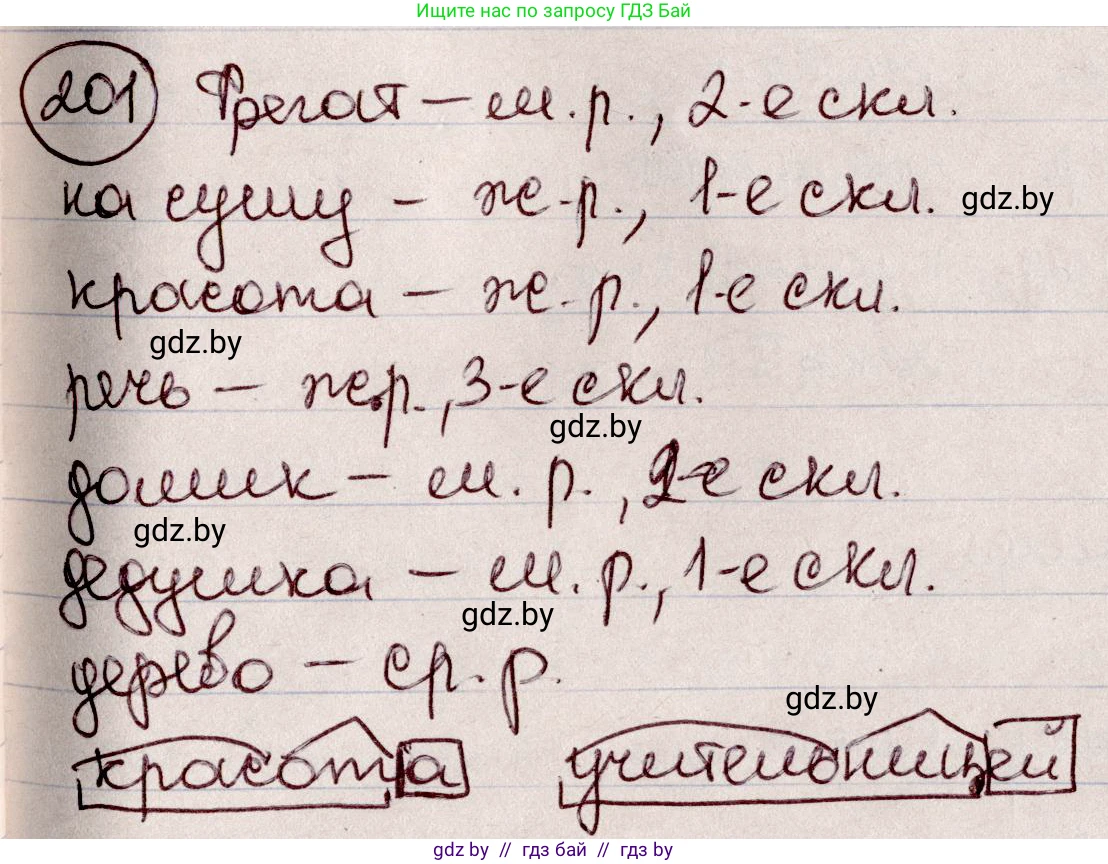 Ищите нас по запросу ГДЗ Бай
201 Фрегат – м.р., 2-е скл.
на сушу – ж.р., 1-е скл. gdz.by
красота – ж.р., 1-е скл.
gdz.by
речь – ж.р., 3-е скл.
gdz.by
домик – м.р., 2-е скл.
gdz.by
дедушка – м.р., 1-е скл.
gdz.by
дерево – ср.р.
gdz.by
красота учительницей
gdz.by // гдз бай // гдз by